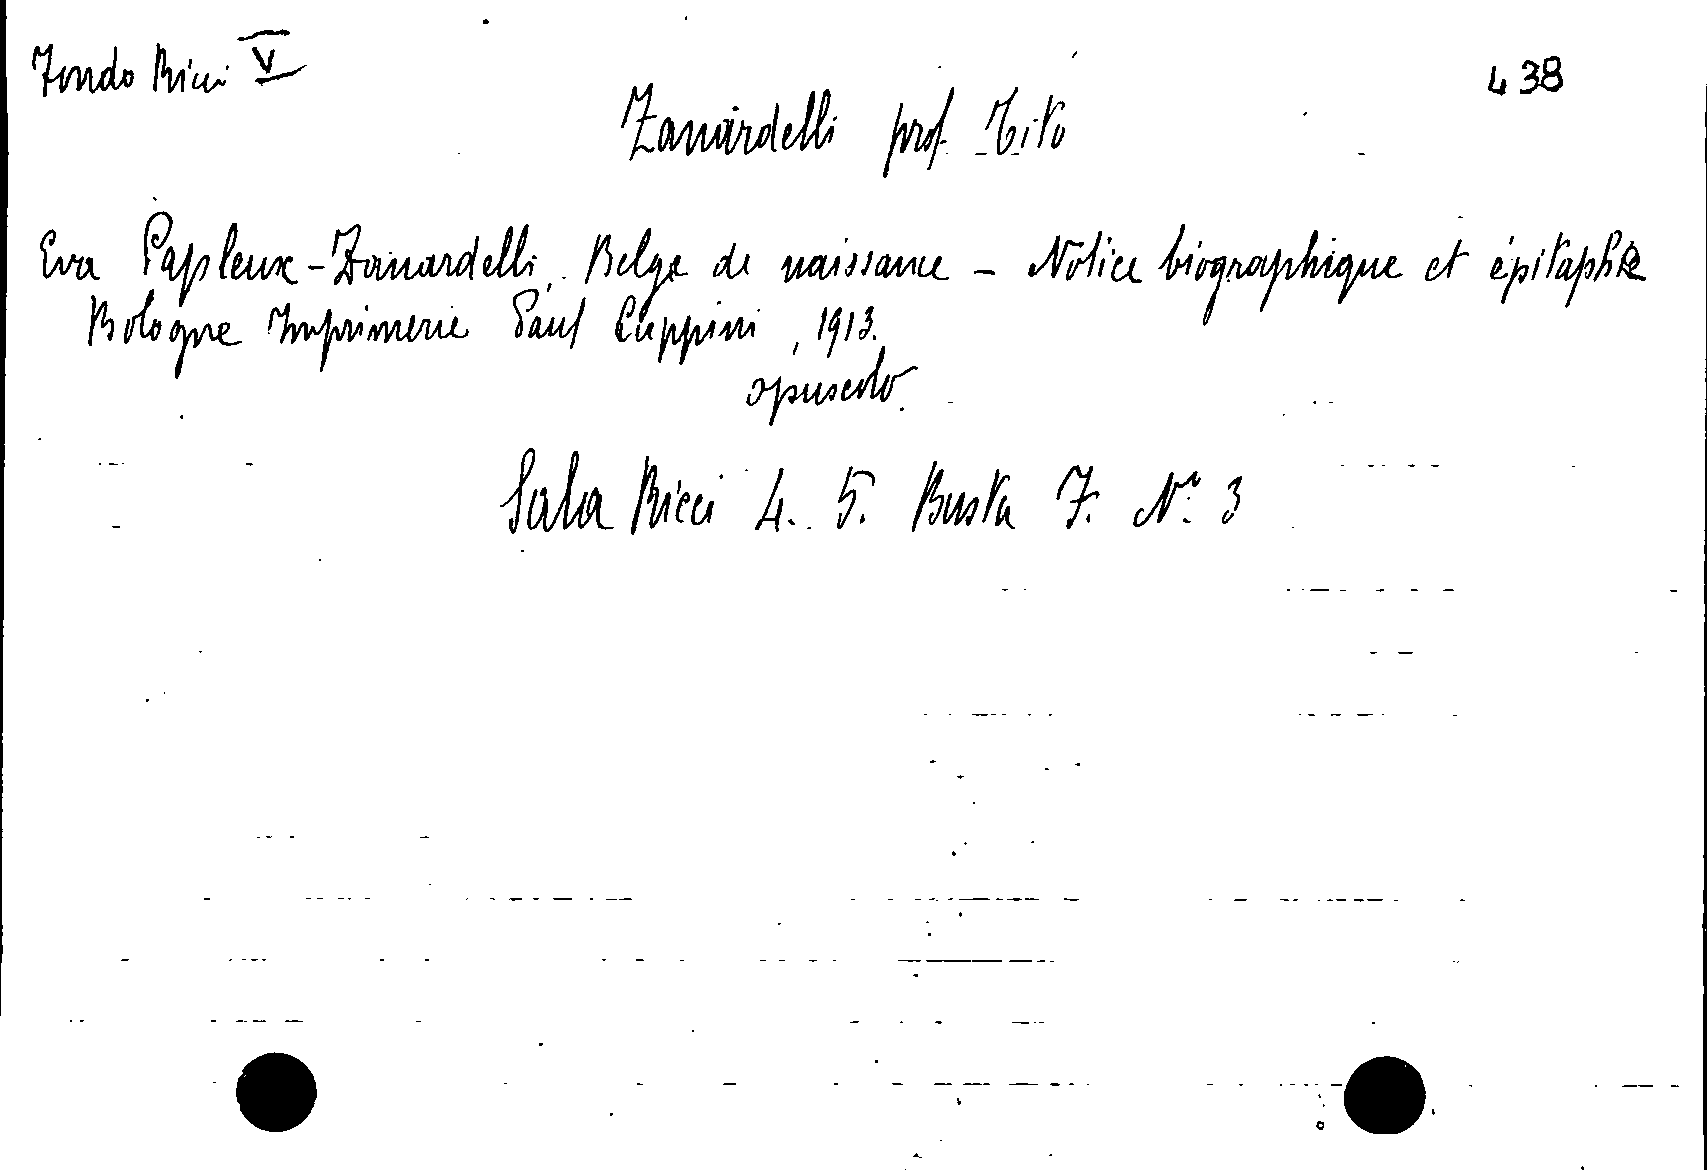 Fondo Ricci V
438
Zanardelli prof. Tito
Eva Papleux - Zanardelli, Belge de naissance - Notice biographique et épitaphe
Bologne Imprimerie Paul Cuppini, 1913.
opuscolo.
Sala Ricci 4. 5. Busta 7. Nº 3